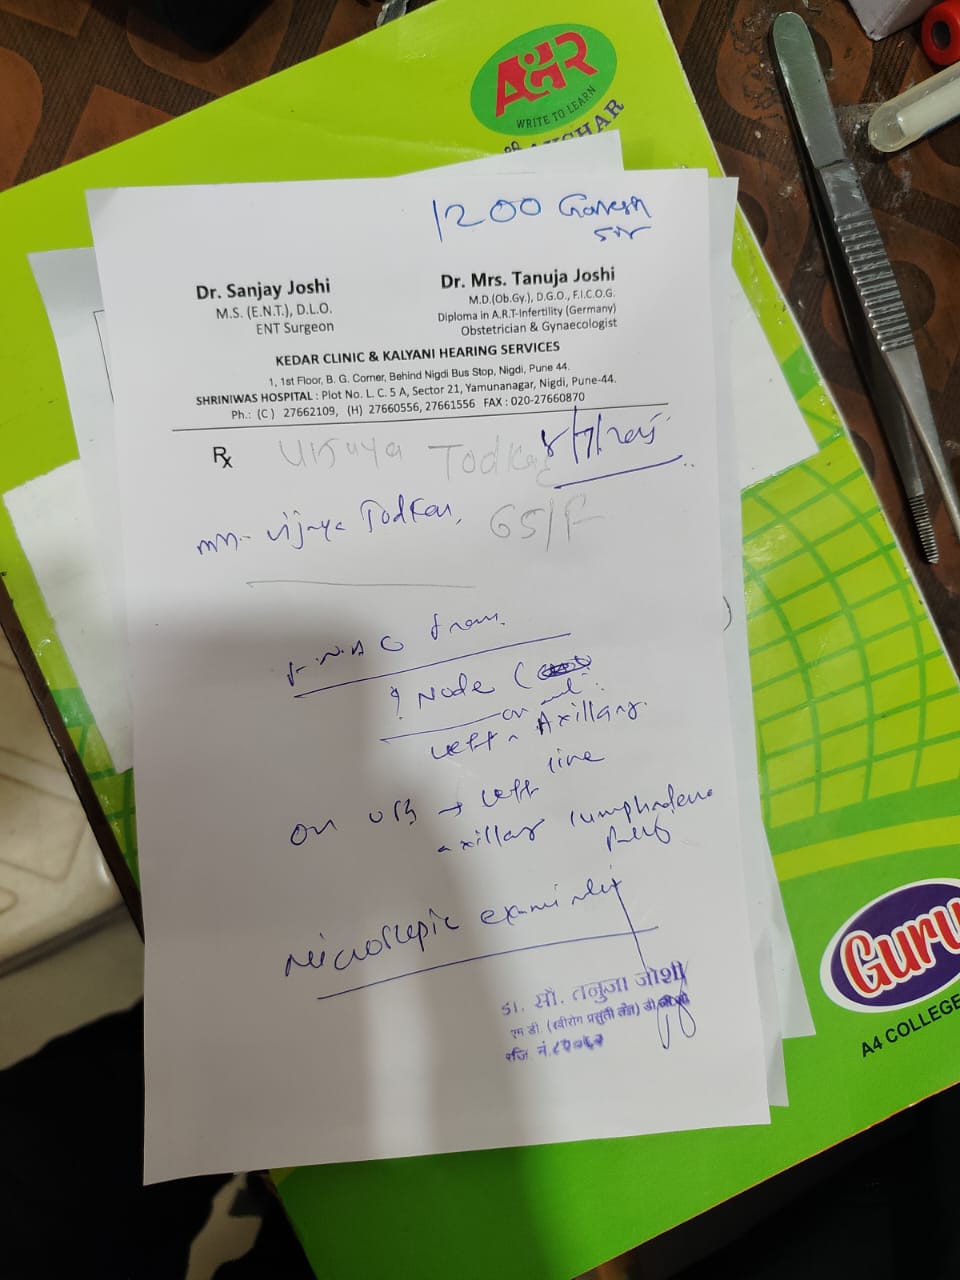 AGR
WRITE TO LEARN
1200 Ganesh
sir
Dr. Sanjay Joshi
M.S. (E.N.T.), D.L.O.
ENT Surgeon
Dr. Mrs. Tanuja Joshi
M.D.(Ob.Gy.), D.G.O., F.I.C.O.G.
Diploma in A.R.T-Infertility (Germany)
Obstetrician & Gynaecologist
KEDAR CLINIC & KALYANI HEARING SERVICES
1, 1st Floor, B. G. Corner, Behind Nigdi Bus Stop, Nigdi, Pune 44.
SHRINIWAS HOSPITAL : Plot No. L. C. 5 A, Sector 21, Yamunanagar, Nigdi, Pune-44.
Ph.: (C) 27662109, (H) 27660556, 27661556 FAX : 020-27660870
Rx Vijuya Todkar
8/7/2025
Vijaya Todkar, 65/F
F.N.A.C from
? Node (
on
Left Axillary
line
on USG → Left
axillary lymphadeno
pathy
Microscopic
डा. सौ. तनुजा जोशी
एम डी. (स्त्रीरोग प्रसुती तज्ञ)
रजि. नं.
Guru
A4 COLLEGE